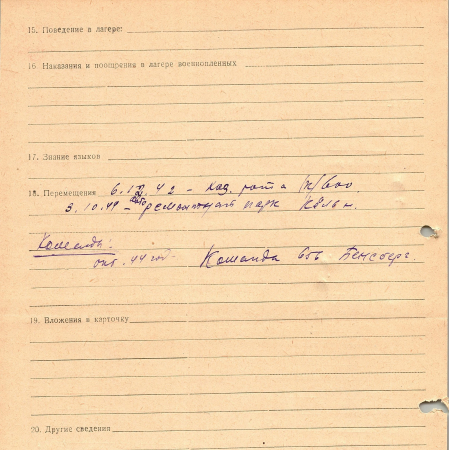 15. Поведение в лагере:
16 Наказания и поощрения в лагере военнопленных
17. Знание языков
18. Перемещения 6.12.42 – рота
3.10.44 – авто ремонтный парк Кёльн.
Команды:
окт. 44 год – Команда Бенсберг.
19. Вложения в карточку
20. Другие сведения